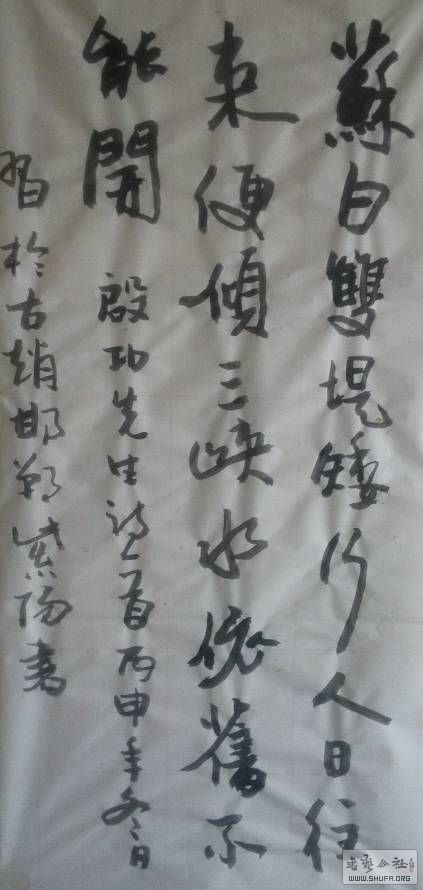 蘇白雙堤矮行人日往
来便傾三峡水依舊不
能開 啟功先生詩一首丙申年冬日
習於古趙邯鄲紫陽書
书艺公社
WWW.SHUFA.ORG